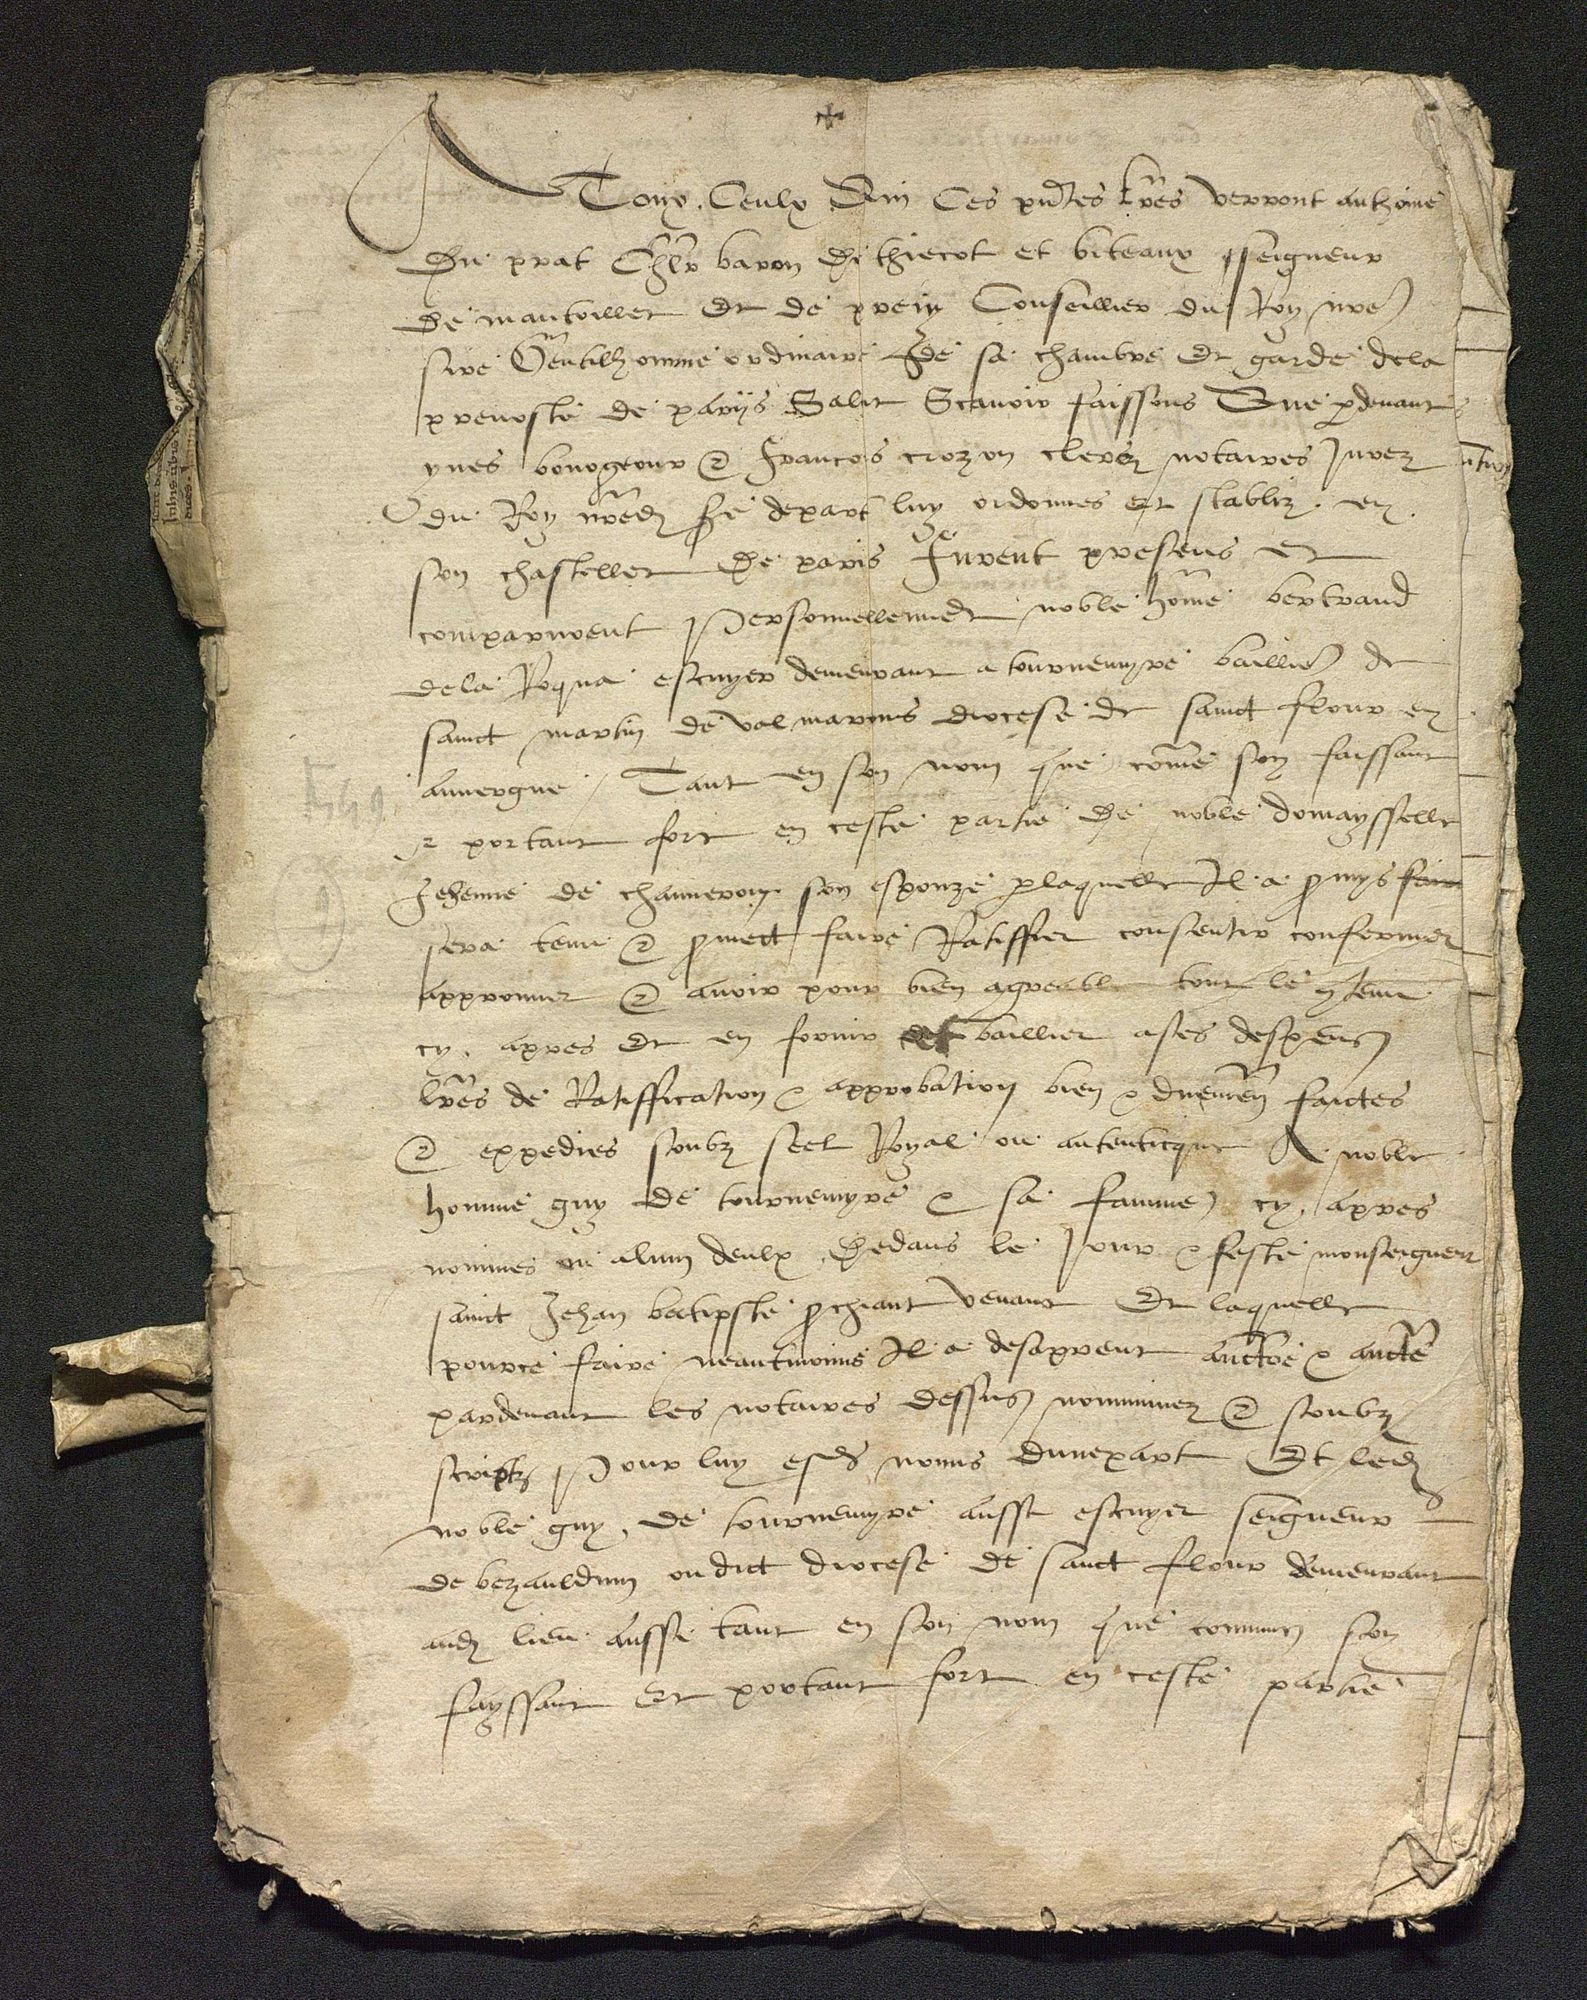 A Toux Ceulx Qui Ces pntes lres verront anthoine
du prat chlr baron de thiecot et viteaux seigneur
de nantoillet et de precy Conseillier du Roy nre
sire Gentilhomme ordinaire de sa chambre et garde de la
prevoste de pariis Salut Scavoir faissons Que pdevant
yves bonogtour & francois crozon clercz notaires Jurez
du Roy nred sr de depart luy ordonnes et stabliz en
son chastellet de paris furent presens et
comparurent personnellement noble home bertrand
dela Roqua escuyer demeurant a tournemyre bailliē de
sainct martin de valmarous diocese de sainct flour en
auvergne Tant en son nom que come soy faissant
& portant fort en ceste partie de noble domayselle
Jehenne de channeron son espouze plaquelle Il a pmys fair
sera tenu & pmect faire Ratiffier consentir confermer
approuver & avoir pour bien agreable tout le gtenu
cy apres et en fornir et baillier a ses despens
lres de Ratiffication & approbation bien & duement faictes
& expedies soubz seel Royal ou autenticque A noble
homme guy de tournemyre & sa famme cy apres
nommes ou a lun deulx dedans le Jour & feste monseigneur
sainct Jehan batipste pchiant venant Et laquelle
pource faire neantmoins Il a desapresent auctoe & aucte
pardevant les notaires dessus nommez & soubz
scriptz pour luy esd noms dunepart Et led
noble guy de tournemyre aussi escuyer seigneur
de bezauldun oudict diocese de sainct flour demeurant
aud lieu aussi tant en son nom que comme soy
fayssant et portant fort en ceste partie